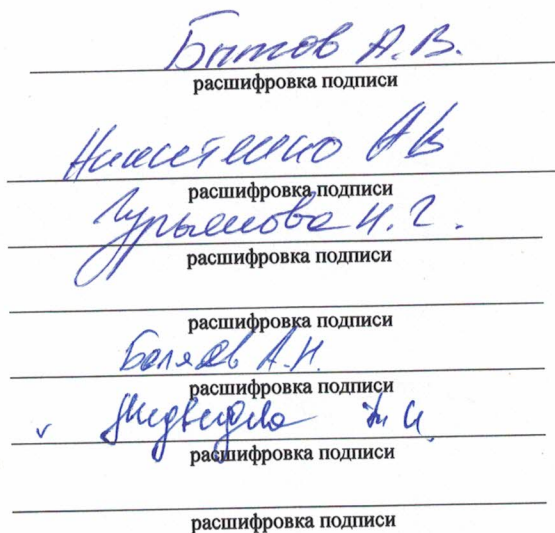 Бытов А.В.
расшифровка подписи
Никитенко АВ
расшифровка подписи
Гурьянова Н.Г.
расшифровка подписи
расшифровка подписи
А.Н.
расшифровка подписи
Медведева
расшифровка подписи
расшифровка подписи